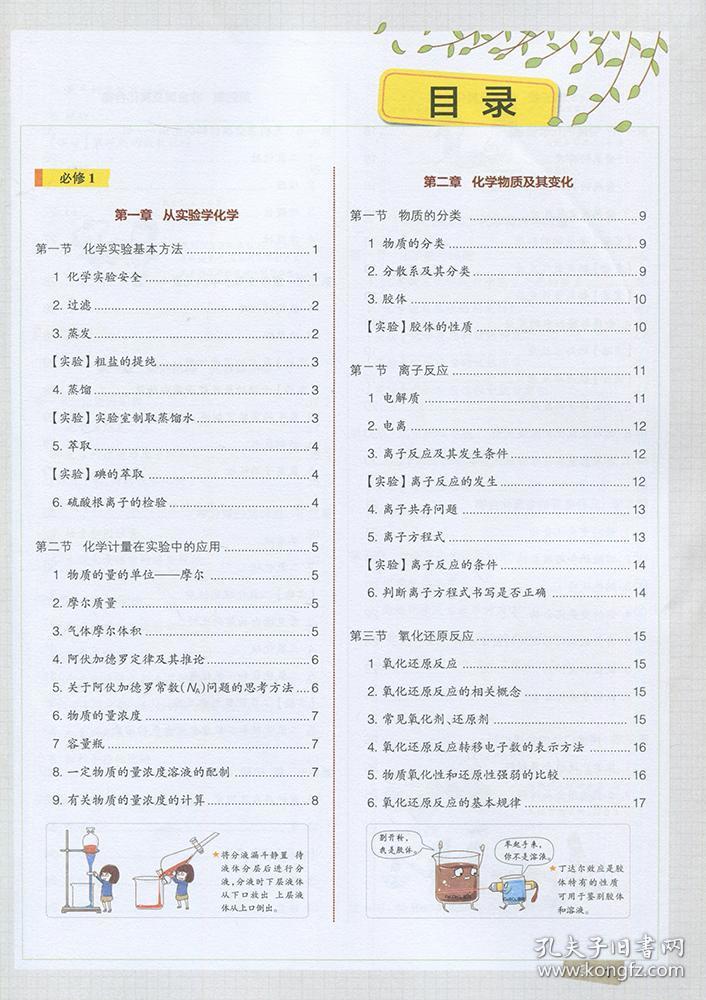 目录
必修1
第一章 从实验学化学
第一节 化学实验基本方法 1
1 化学实验安全 1
2. 过滤 2
3. 蒸发 2
【实验】粗盐的提纯 3
4. 蒸馏 3
【实验】实验室制取蒸馏水 3
5. 萃取 4
【实验】碘的萃取 4
6. 硫酸根离子的检验 4
第二节 化学计量在实验中的应用 5
1 物质的量的单位——摩尔 5
2. 摩尔质量 5
3. 气体摩尔体积 5
4. 阿伏加德罗定律及其推论 6
5. 关于阿伏加德罗常数(NA)问题的思考方法 6
6. 物质的量浓度 7
7 容量瓶 7
8. 一定物质的量浓度溶液的配制 7
9. 有关物质的量浓度的计算 8
★将分液漏斗静置 待
液体分层后进行分
液,分液时下层液体
从下口放出 上层液
体从上口倒出。
第二章 化学物质及其变化
第一节 物质的分类 9
1 物质的分类 9
2. 分散系及其分类 9
3. 胶体 10
【实验】胶体的性质 10
第一节 离子反应 11
1 电解质 11
2. 电离 12
3. 离子反应及其发生条件 12
【实验】离子反应的发生 12
4. 离子共存问题 13
5. 离子方程式 13
【实验】离子反应的条件 14
6. 判断离子方程式书写是否正确 14
第三节 氧化还原反应 15
1 氧化还原反应 15
2. 氧化还原反应的相关概念 15
3. 常见氧化剂、还原剂 15
4. 氧化还原反应转移电子数的表示方法 16
5. 物质氧化性和还原性强弱的比较 16
6. 氧化还原反应的基本规律 17
别开枪,
我是胶体。
举起手来,
你不是溶液。
★丁达尔效应是胶
体特有的性质
可用于鉴别胶体
和溶液。
孔夫子旧书网
www.kongfz.com